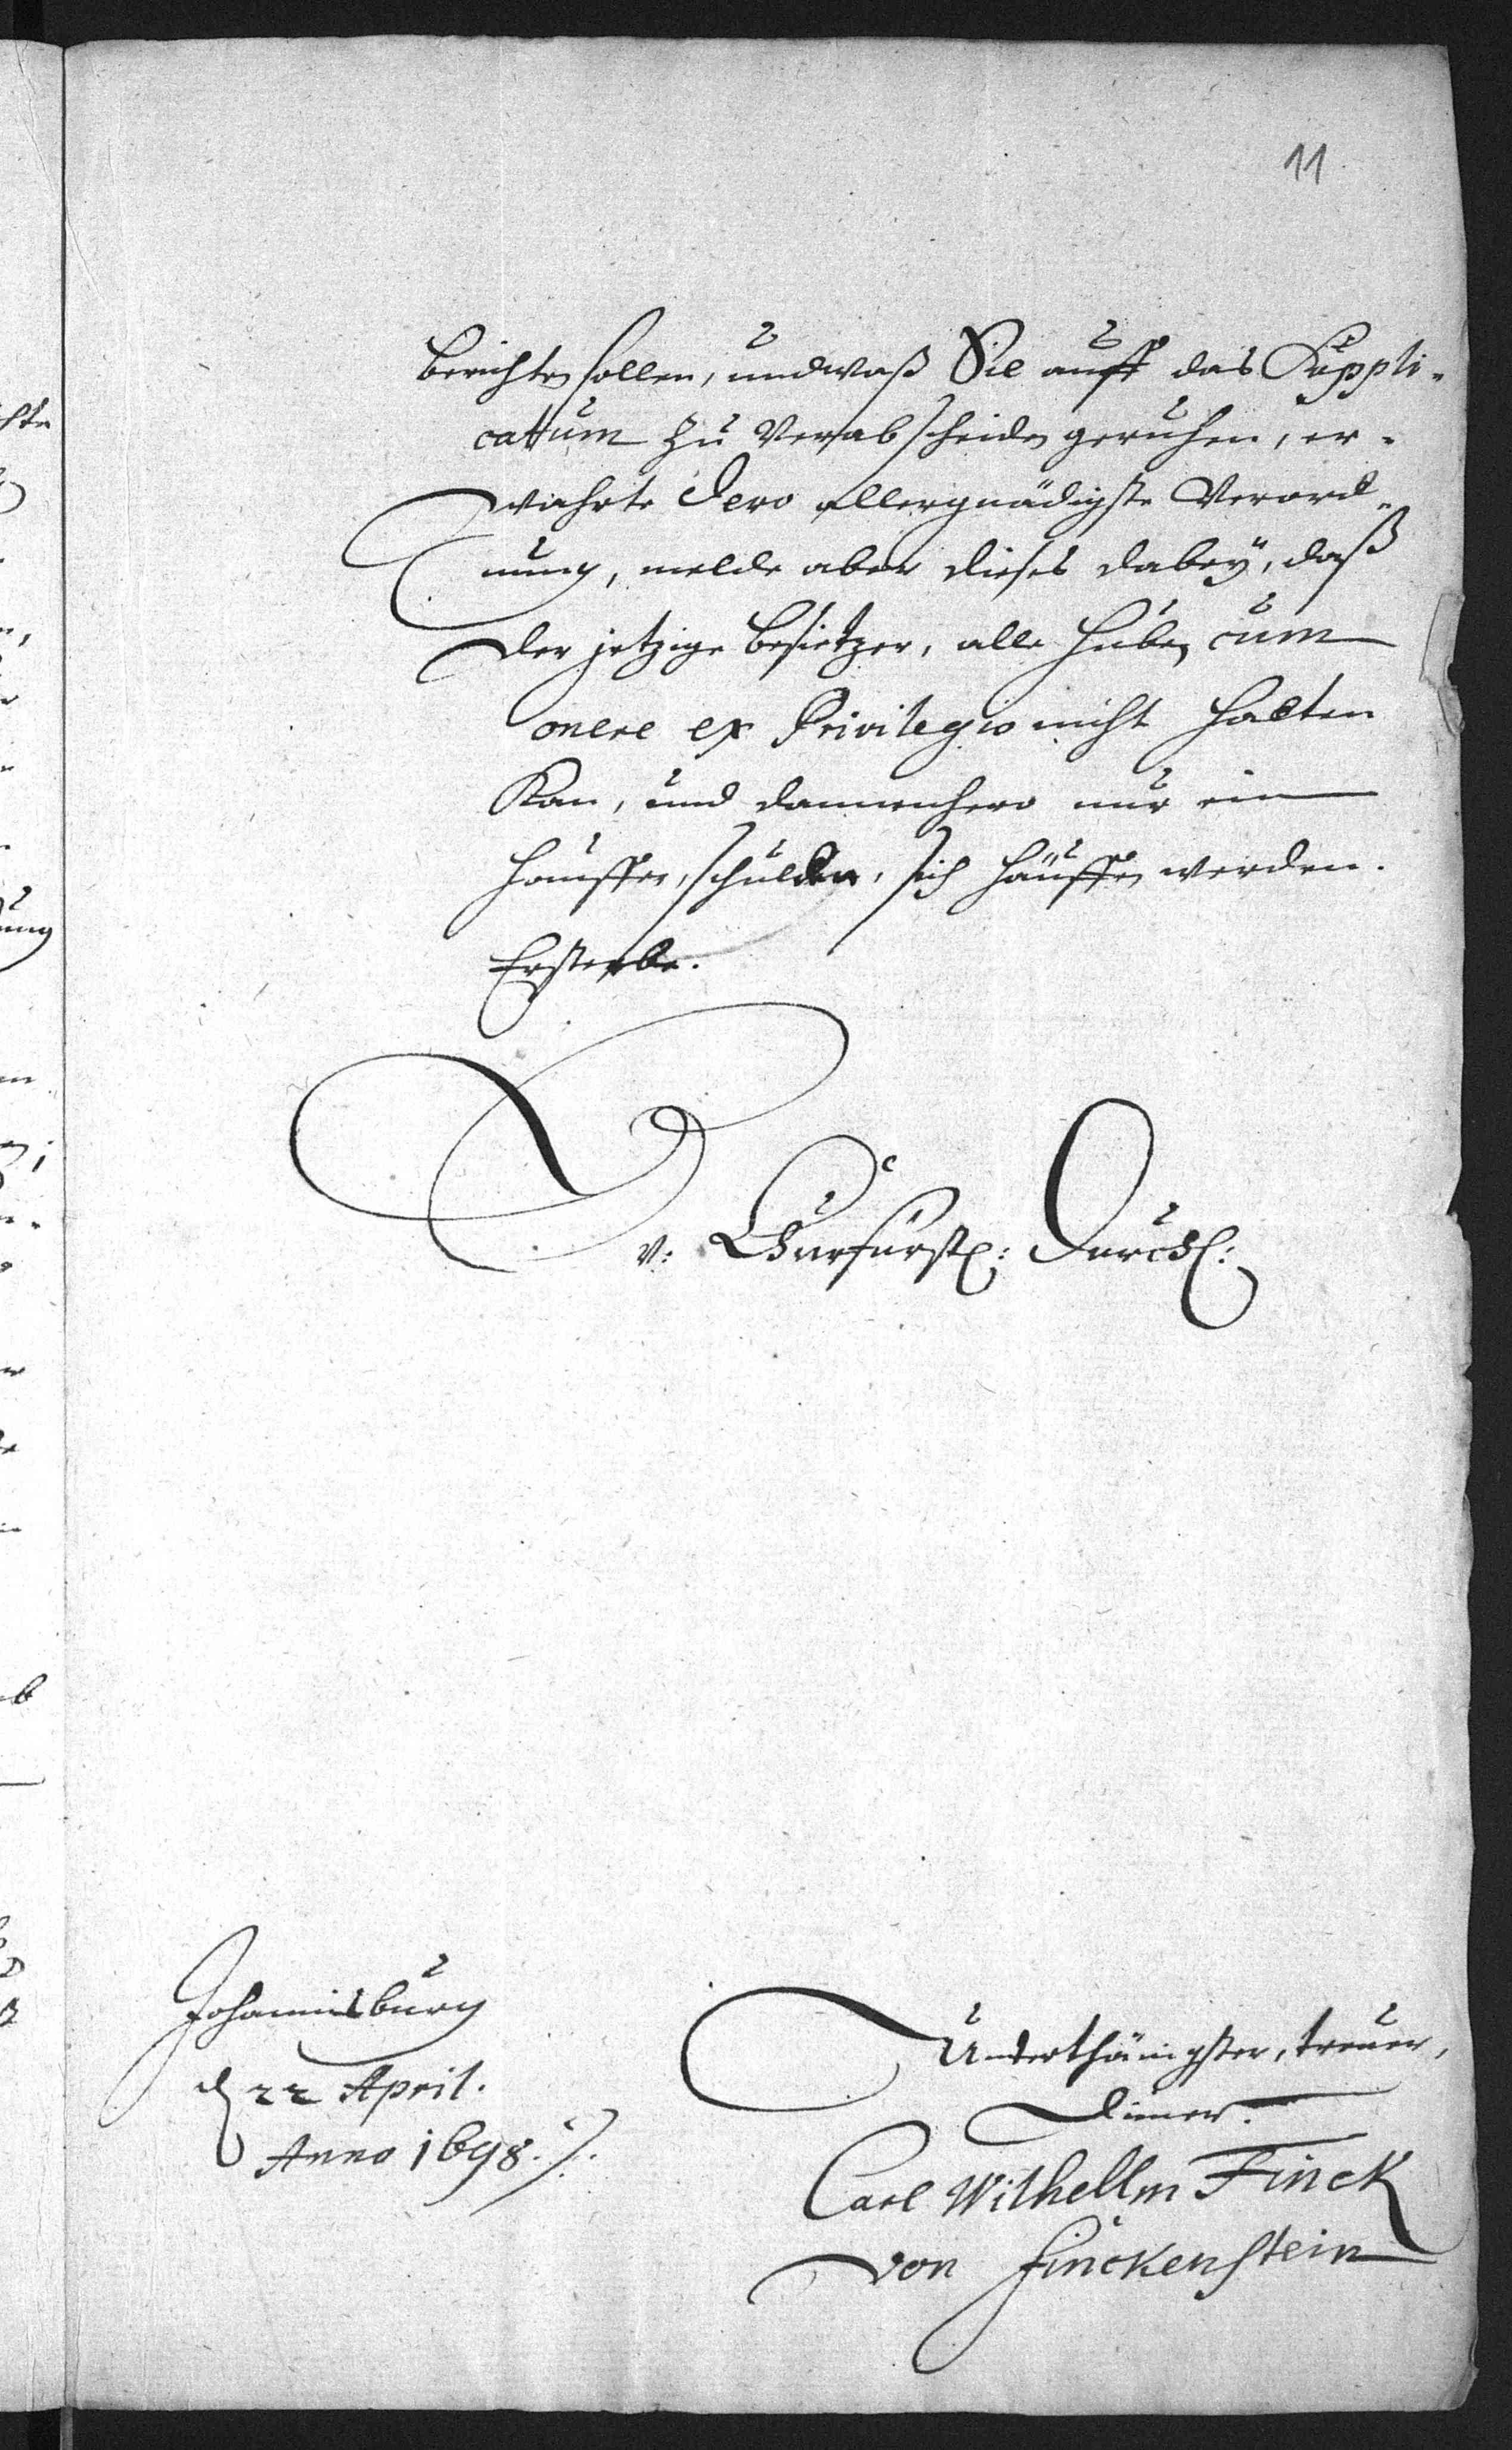 11
berichten sollen, und waß Sie auff das Suppli-
cattum zu Verabscheiden geruhen, er-
wahrte Dero allergnädigste Verord-
nung, melde aber dieses dabey, daß
der jetzige besietzer, alle Huben cum
onere ex Privilegio nicht halten
Kan, und dannenhero nur ein
hauffen, schulden, sich häuffen werden.
Ersterbe.
v: Churfürstl: Durchl:
Johannisburg
d 22 April.
Anno 1698.
Unterthänigster, treuer,
Diener.
Carl Wilhellm Finck
von Finckenstein